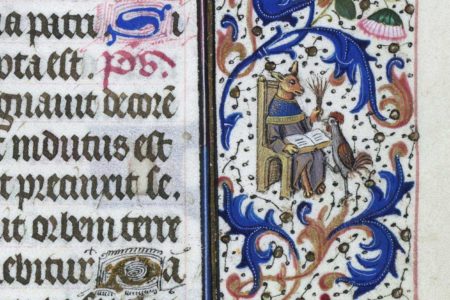 a patri Si
pta est. ps.
gnauit decorē
indutus est
t precinxit se.
uit orbem terre
ebitur a